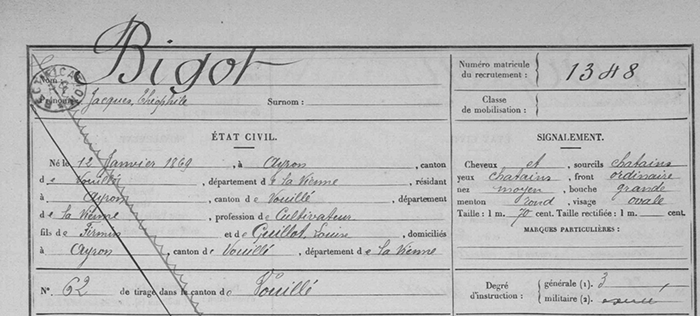 Bigot
Nom :
Prénoms : Jacques, Théophile Surnom :
Numéro matricule du recrutement : 1348
Classe de mobilisation :
ÉTAT CIVIL.
Né le 12 Janvier 1869, à Ayron, canton
de Vouillé, département de la Vienne, résidant
à Ayron, canton de Vouillé, département
de la Vienne, profession de Cultivateur
fils de Firmin et de Guillot, Louise, domiciliés
à Ayron, canton de Vouillé, département de la Vienne
N° 62 de tirage dans le canton de Vouillé
SIGNALEMENT.
Cheveux et sourcils chatains
yeux chatains, front ordinaire
nez moyen, bouche grande
menton rond, visage ovale
Taille : 1 m. 70 cent. Taille rectifiée : 1 m. cent.
MARQUES PARTICULIÈRES :
Degré d'instruction : générale (1). 3
militaire (2). exercé